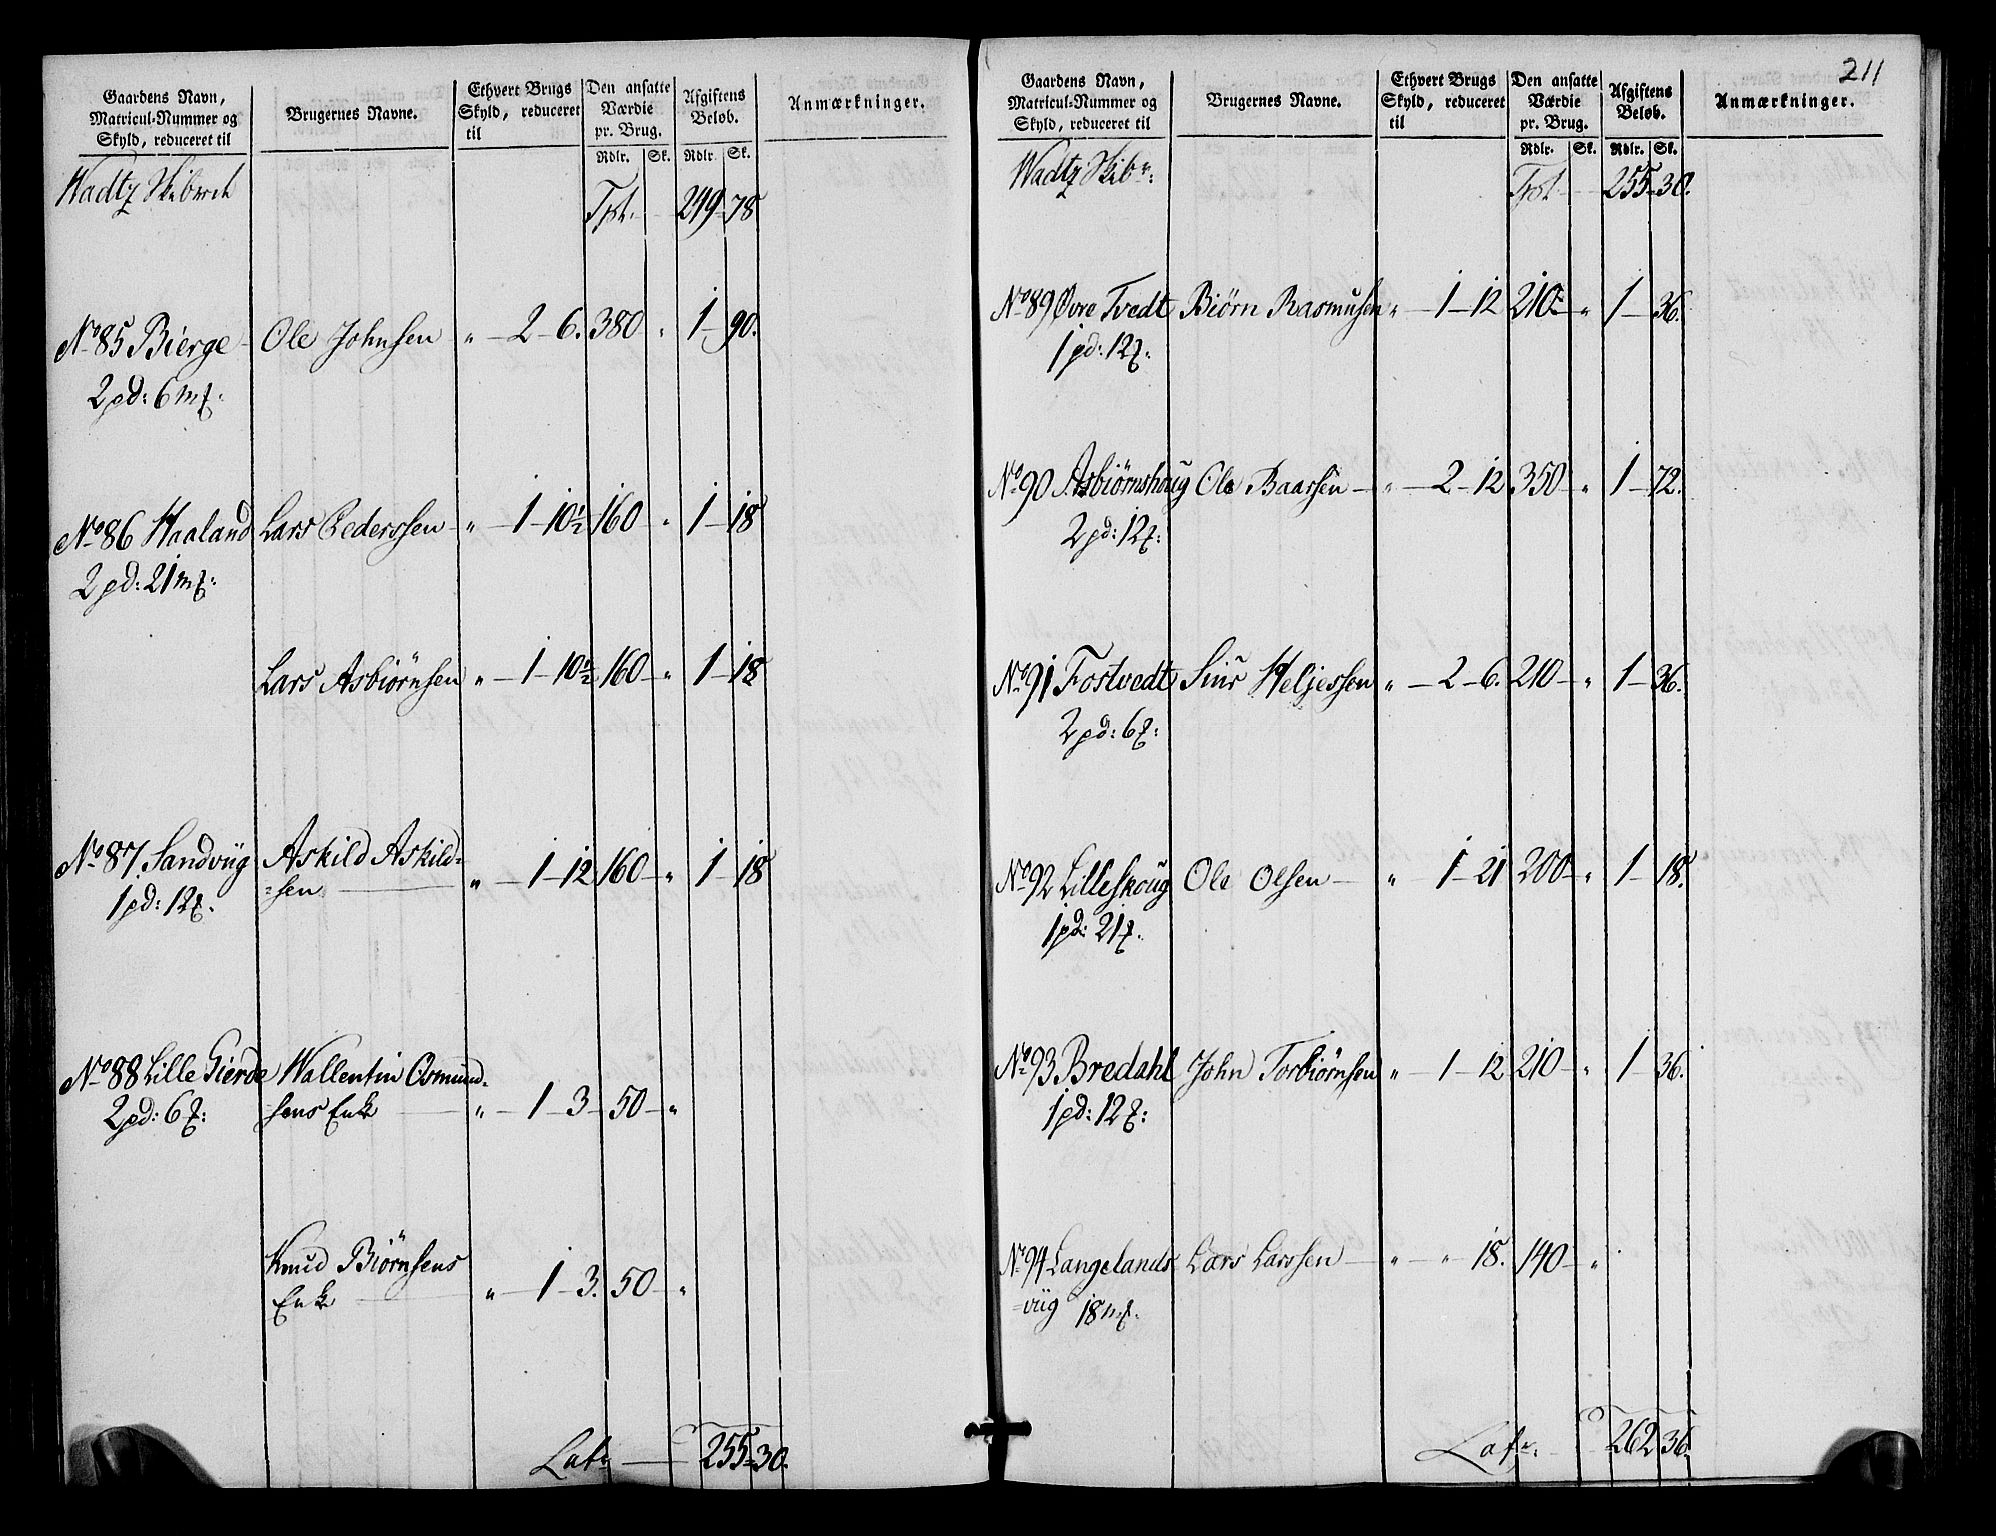 Gaardens Navn,
Matricul-Nummer og
Skyld, reduceret til
Brugernes Navne.
Ethvert Brugs
Skyld, reduceret
til
Den ansatte
Værdie
pr. Brug.
Rdlr. Sk.
Afgiftens
Beløb.
Rdlr. Sk.
Anmærkninger.
Wadtz Skibred
Tpt. 249 78
No 85 Bierge Ole Johnsen " 2 6. 380 " 1 90.
2 pd: 6 m[:
No 86 Haaland Lars Pederssen " 1 10½ 160 " 1 18
2 pd: 21 m[:
Lars Asbiörnsen " 1 10½ 160 " 1 18
No 87 Sandviig Askild Askild=
1 pd: 12 [: =sen " 1 12 160 " 1 18
No 88 Lille Gierde Wallentin Osmund=
2 pd: 6 [: sens Enke " 1 3 50 "
Knud Biörnsens
Enke " 1 3. 50 "
Latr 255 30.
211
Gaardens Navn,
Matricul-Nummer og
Skyld, reduceret til
Brugernes Navne.
Ethvert Brugs
Skyld, reduceret
til
Den ansatte
Værdie
pr. Brug.
Rdlr. Sk.
Afgiftens
Beløb.
Rdlr. Sk.
Anmærkninger.
Wadtz Skibr:
Tpt. 255 30.
No 89 Øvre Tvedt Biörn Rasmusen " 1 12 210 " 1 36.
1 pd: 12 [:
No 90 Asbiörnshoug Ole Baarsen " 2 12 350 " 1 72.
2 pd: 12 [:
No 91 Fostvedt Siur Heljessen " 2 6. 210 " 1 36.
2 pd: 6 [:
No 92 Lilleskoug Ole Olsen " 1 21 200 " 1 18.
1 pd: 21 [.
No 93 Bredahl John Torbiörnsen " 1 12 210 " 1 36.
1 pd: 12 [:
No 94 Langelands Lars Larssen " " 18. 140 "
=viig 18 m[.
Latr: 262 36.